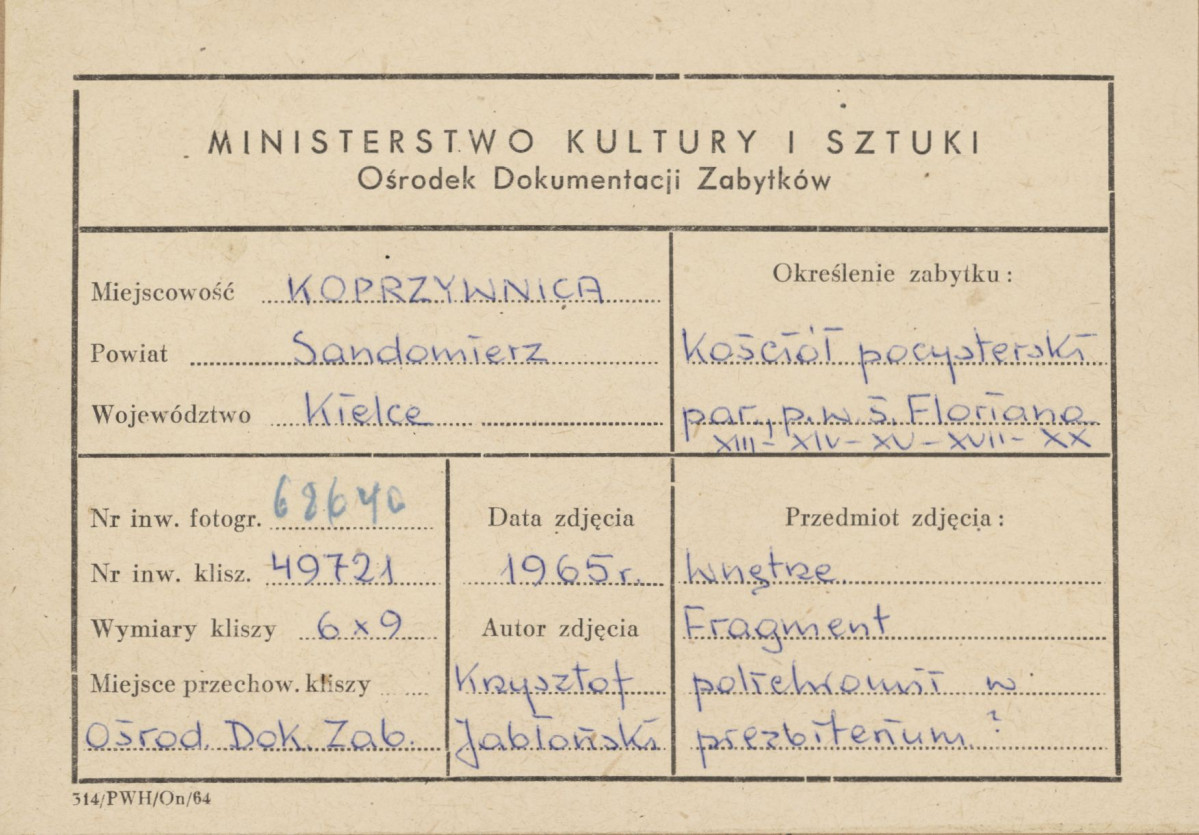 MINISTERSTWO KULTURY I SZTUKI
Ośrodek Dokumentacji Zabytków
Miejscowość KOPRZYWNICA
Powiat Sandomierz
Województwo Kielce
Określenie zabytku:
Kościół pocysterski
par., p.w. ś. Floriana
XIII - XIV - XV - XVII - XX
Nr inw. fotogr. 68640
Nr inw. klisz. 49721
Wymiary kliszy 6 x 9
Miejsce przechow. kliszy
Ośrod. Dok. Zab.
Data zdjęcia
1965 r.
Autor zdjęcia
Krzysztof
Jabłoński
Przedmiot zdjęcia:
Wnętrze.
Fragment
polichromii w
prezbiterium.?
314/PWH/On/64